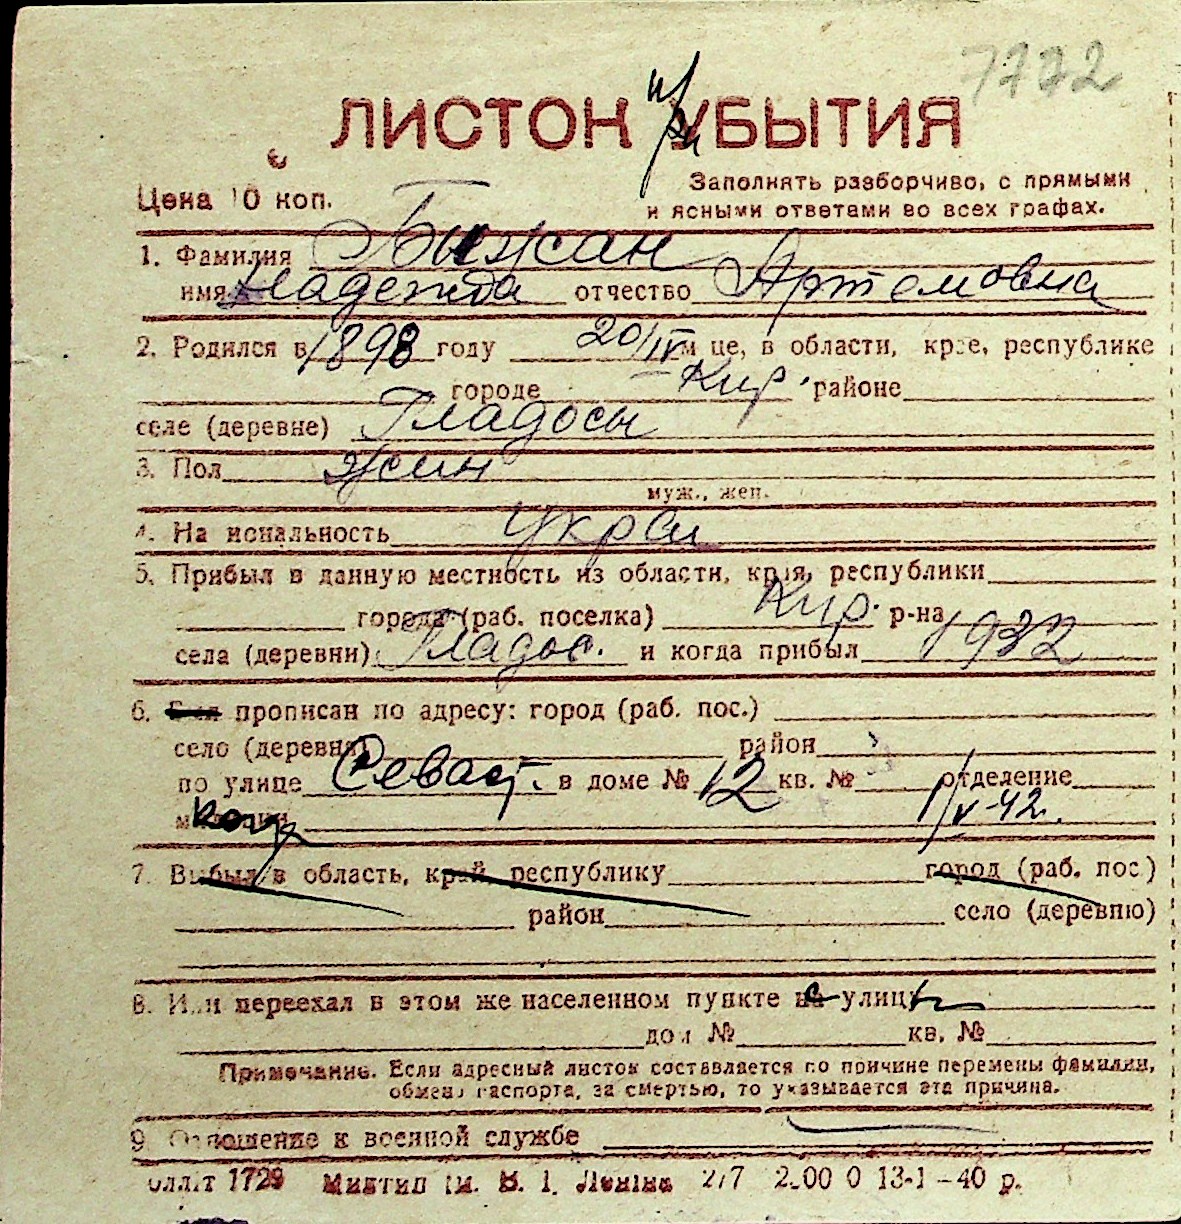 7772
ЛИСТОК при УБЫТИЯ
Цена 10 коп.
Заполнять разборчиво, с прямыми
и ясными ответами во всех графах.
1. Фамилия Быжан
имя Надежда отчество Артемовна
2. Родился в 1898 году 20/IV м це, в области, крае, республике
городе Кир. районе
селе (деревне) Гладосы
3. Пол жен
муж., жен.
4. На иональность Укра
5. Прибыл в данную местность из области, края, республики
города (раб. поселка) Кир. р-на
села (деревни) Гладос. и когда прибыл 1932
6. прописан по адресу: город (раб. пос.)
село (деревня) район
по улице Севаст. в доме № 12 кв. № отделение
1/V-42.
7. Выбыл в область, край, республику город (раб. пос)
район село (деревню)
8. Или переехал в этом же населенном пункте с улицы
дом № кв. №
Примечание. Если адресный листок составляется по причине перемены фамилии,
обмена паспорта, за смертью, то указывается эта причина.
9 Отношение к военной службе
1729 им. В. І. Леніна 13-1-40 р.